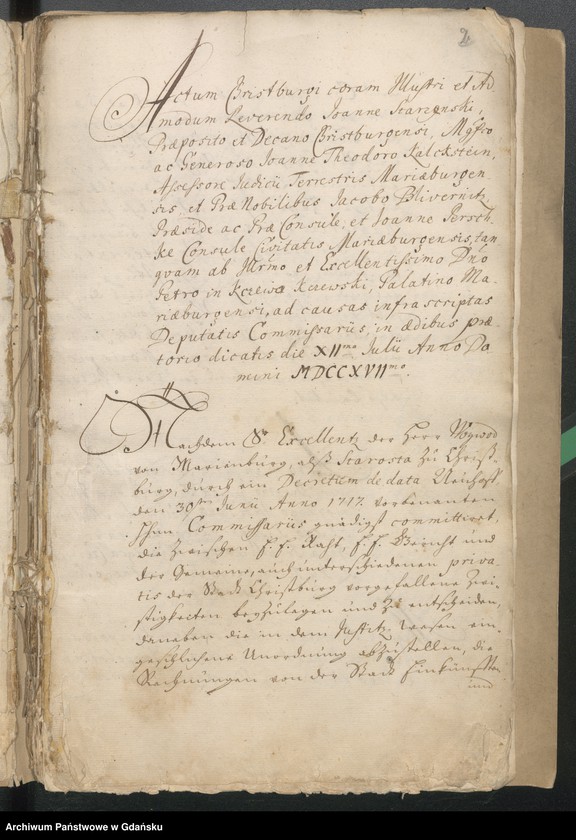 2
Actum Christburgi coram Illustri et Ad
modum Reverendo Joanne Starzenski,
Præposito et Decano Christburgensi, Mgfco
ac Generoso Joanne Theodoro Kalckstein,
Assessore Iudicii Terrestris Mariæburgen
sis, et PræNobilibus Jacobo Blivernitz,
Præside ac Præ Consule, et Joanne Persch
ke Consule Civitatis Mariæburgensis, tan
quam ab Illrmo et Excellentissimo Dno
Petro in Kczewa Kczewski, Palatino Ma-
riæburgensi, ad causas infrascriptas
Deputatis Commissariis, in ædibus præ-
torio dicatis die XIImo Julii Anno Do
mini MDCCXVIImo.
Nachdem Sr Excellentz der Herr Woywod
von Marienburg, alß Starosta zu Christ-
burg, durch ein Decretum de data
den 30ten Junii Anno 1717. vorbenanten
Ihm Commissariis gnädigst committiret,
die zwischen E. E. Raht, E. E. Gericht und
der Gemeine, auch unterschiedenen priva-
tis der Stadt Christburg vorgefallene Zwi-
stigkeiten beyzulegen und zu entscheiden,
daneben die in dem Justitz-Wesen ein-
geschlichene Unordnung abzustellen, die
Rechnungen von der Stadt Einkünfften
und
Archiwum Państwowe w Gdańsku